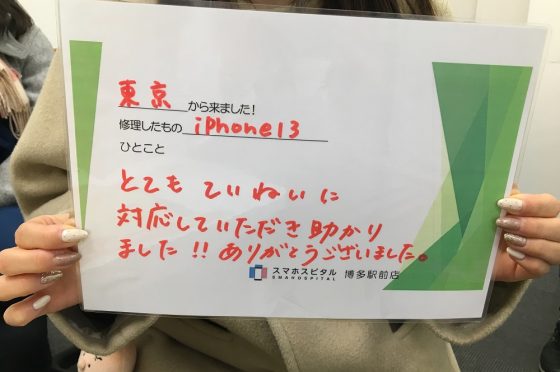 東京から来ました!
修理したもの iPhone13
ひとこと
とても ていねいに
対応していただき助かり
ました!! ありがとうございました。
スマホスピタル 博多駅前店
SMAHOSPITAL